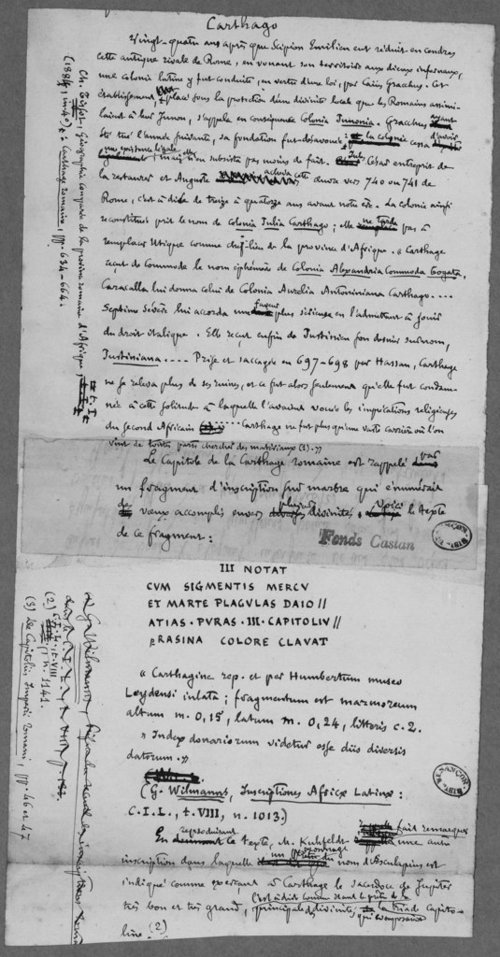 Carthago
Vingt-quatre ans après que Scipion Emilien eut réduit en cendres
cette antique rivale de Rome, en vouant son territoire aux dieux infernaux,
une colonie latine y fut conduite, en vertu d'une loi, par Caius Gracchus. Cet
établissement, placé sous la protection d'une divinité locale que les Romains assimi-
laient à leur Junon, s'appela en conséquence Colonia Junonia. Gracchus ayant
été tué l'année suivante, sa fondation fut désavouée: la colonie cessa d'avoir
une existence légale, mais n'en subsista pas moins de fait. Jules César entreprit de
la restaurer et Auguste acheva cette œuvre vers 740 ou 741 de
Rome, c'est à dire de treize à quatorze ans avant notre ère. La colonie ainsi
reconstituée prit le nom de Colonia Julia Carthago; elle ne tarda pas à
remplacer Utique comme chef-lieu de la province d'Afrique. « Carthage
reçut de Commode le nom éphémère de Colonia Alexandria Commoda Togata,
Caracalla lui donna celui de Colonia Aurelia Antoniniana Carthago....
Septime Sévère lui accorda une faveur plus sérieuse en l'admettant à jouir
du droit italique. Elle reçut enfin de Justinien son dernier surnom,
Justiniana.... Prise et saccagée en 697-698 par Hassan, Carthage
ne se releva plus de ses ruines, et ce fut alors seulement qu'elle fut condam-
née à cette solitude à laquelle l'avaient vouée les imprécations religieuses
du Second Africain .... Carthage ne fut plus qu'une vaste carrière où l'on
vint de toutes parts chercher des matériaux (1). »
Le Capitole de la Carthage romaine est rappelé par
un fragment d'inscription sur marbre qui énumérait
des vœux accomplis envers plusieurs divinités. Voici le texte
de ce fragment:
Fonds Castan
III NOTAT
CVM SIGMENTIS MERCV
ET MARTE PLAGVLAS DAIO //
ATIAS · PVRAS · III · CAPITOLIV //
ERASINA COLORE CLAVAT
« Carthagine rep. et per Humbertum museo
Leydensi inlata; fragmentum est marmoreum
altum m. 0,15, latum m. 0,24, litteris c. 2.
» Index donariorum videtur esse diis diversis
datorum. »
(G. Wilmanns, Inscriptiones Africæ Latinæ:
C.I.L., t. VIII, n. 1013.)
En reproduisant ce texte, M. Kuhfeldt fait remarquer une autre
inscription dans laquelle un personnage du nom d'Esculapius est
indiqué comme exerçant à Carthage le sacerdoce de Jupiter
très bon et très grand, c'est à dire comme étant le prêtre de la
principale des divinités qui composaient la Triade capito-
line (2).
Ch. Tissot, Géographie comparée de la province romaine d'Afrique, t. I
(1884, in-4°): Carthage romaine, pp. 634-664.
(2) C.I.L., t. VIII,
n. 1141.
(3) De Capitoliis Imperii Romani, pp. 46 et 47